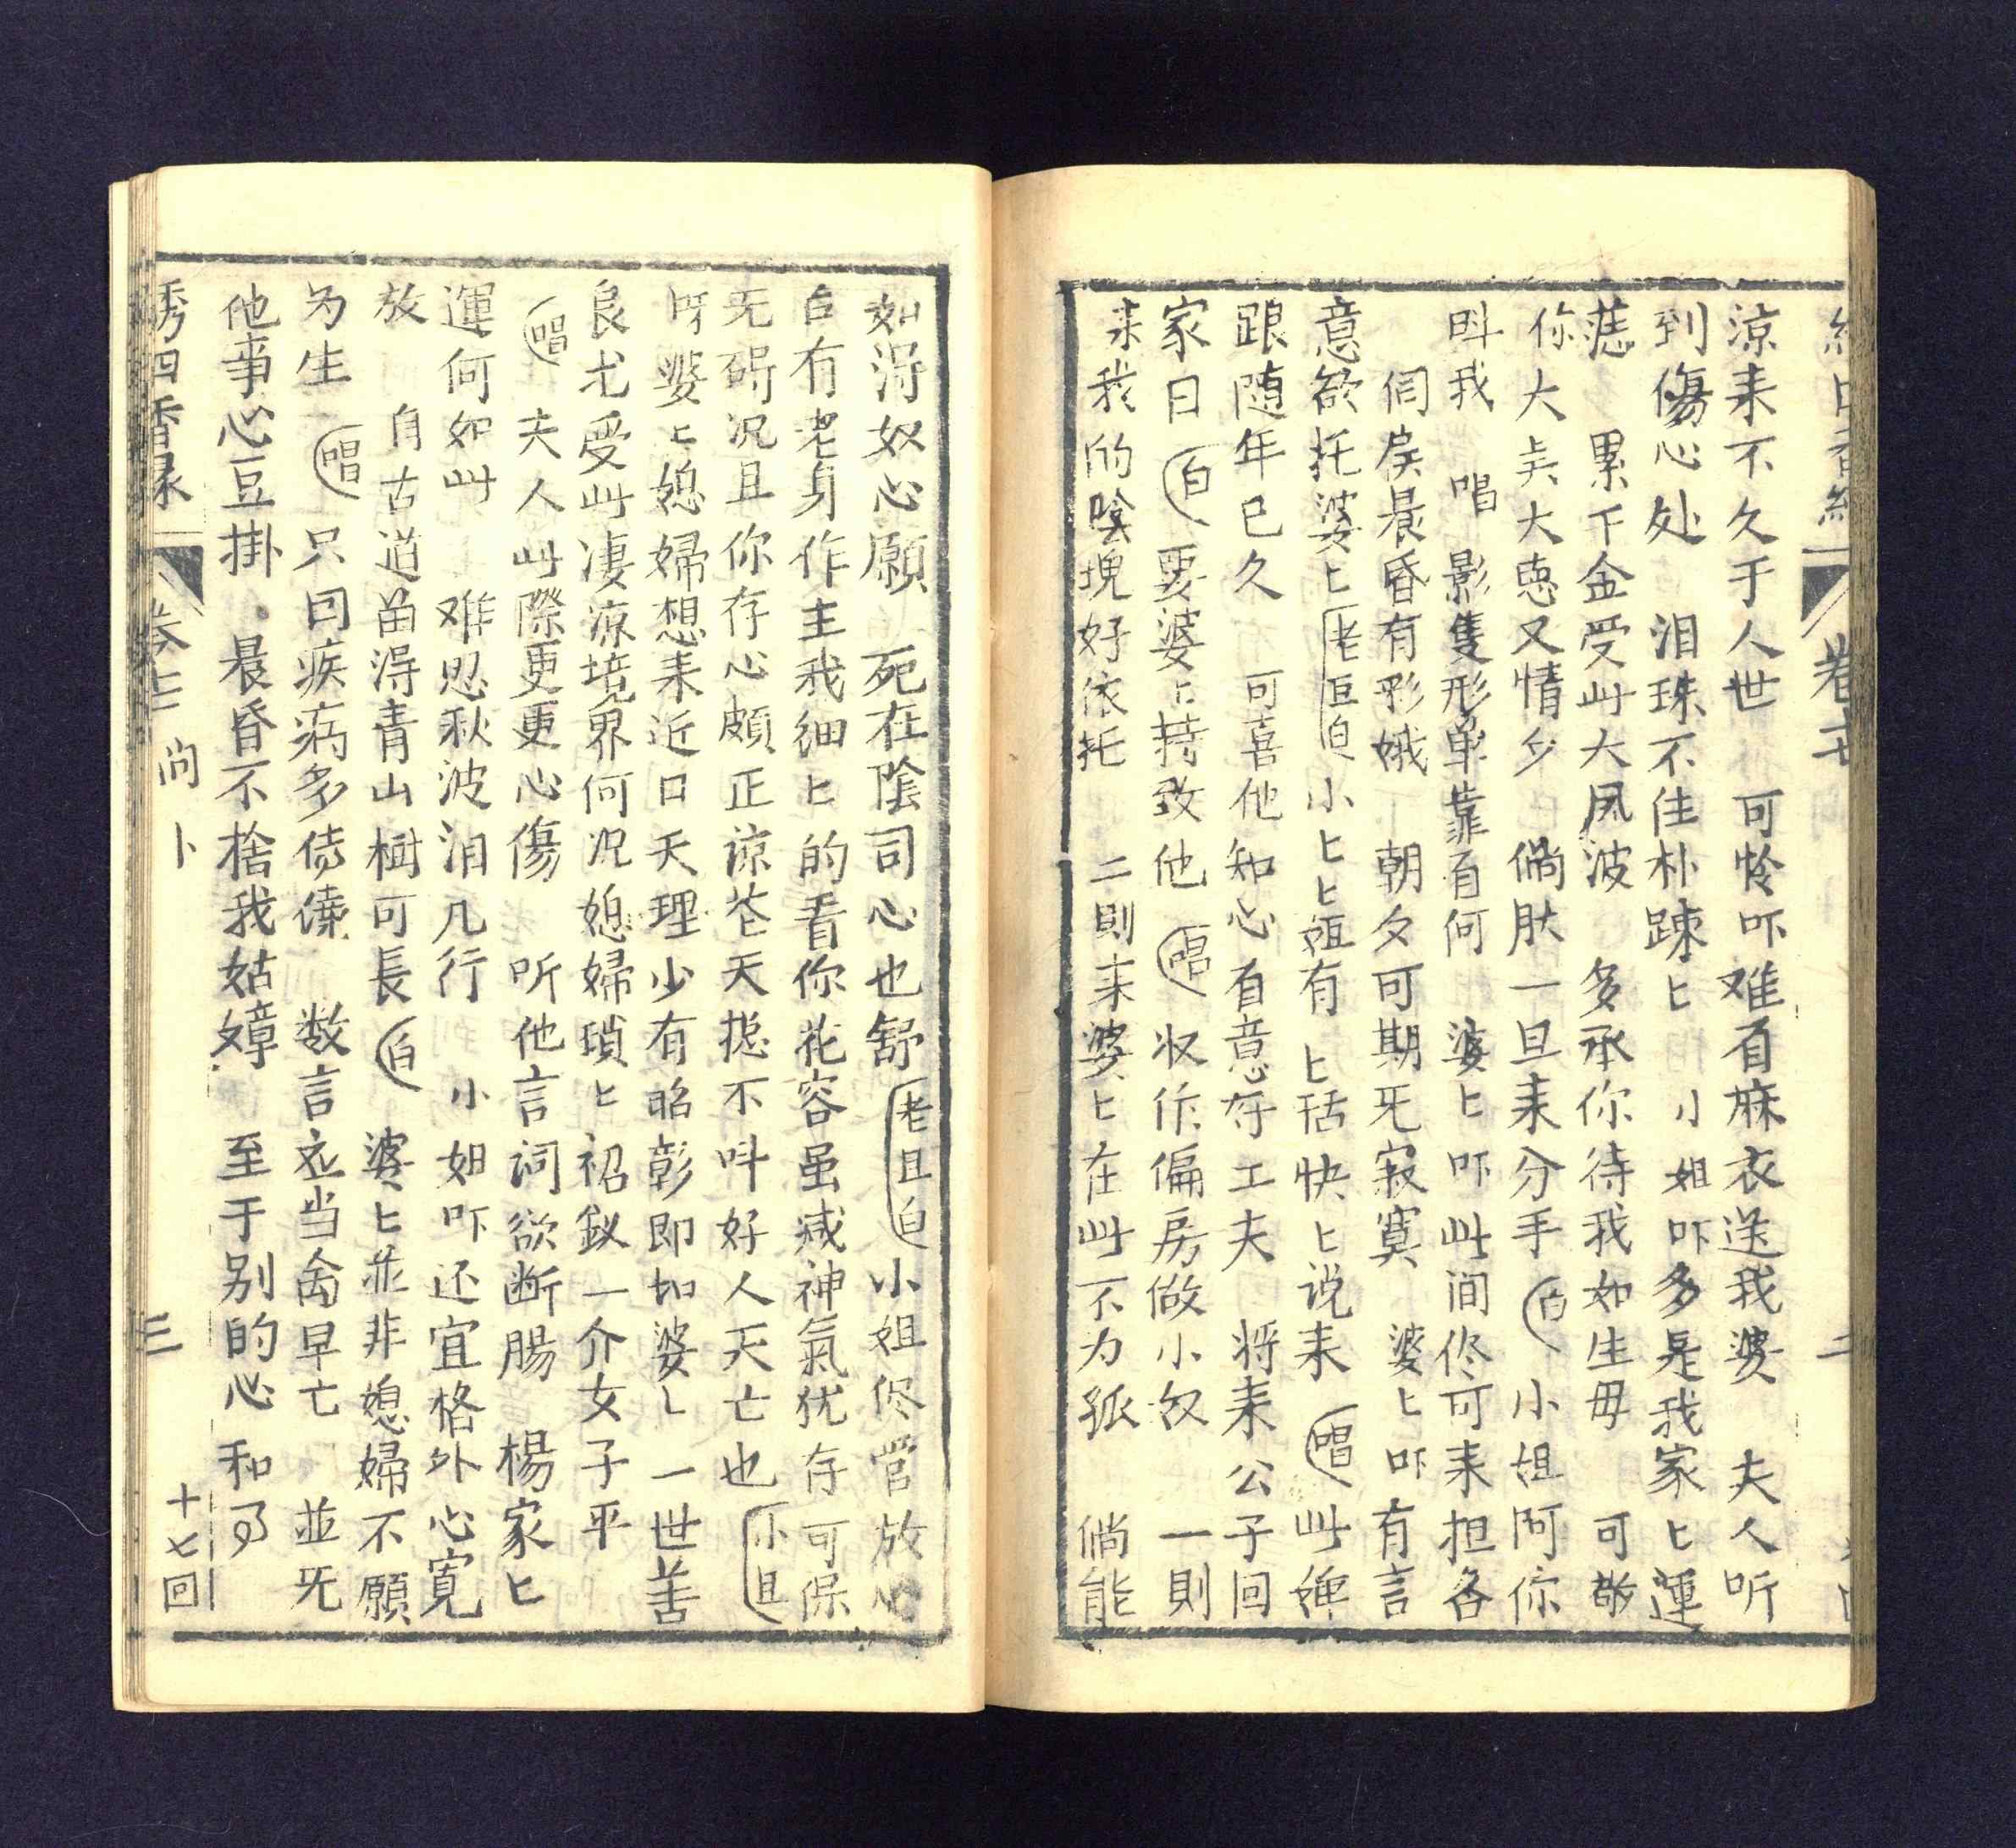 卷七
二
涼来不久于人世 可怜吓难有麻衣送我婆 夫人听
到傷心处 泪珠不住朴踈匕 小姐吓多是我家匕運
蹇 累千金受此大凤波 多承你待我如生毋 可敌
你大兵大患又情多 倘肰一旦来分手 白 小姐阿你
呌我 唱 影隻形单靠有何 婆匕吓此间伱可来担各
伺矦晨昏有形娥 朝夕可期旡寂寞 婆匕吓有言
意欲托婆匕 老旦白 小匕匕姐有匕话快匕说来 唱 此婢
跟随年已久 可喜他知心有意存工夫 将来公子回
家日 白 要婆匕擡致他 唱 収作偏房做小奴 一則
来我的陰塊好依托 二則来婆匕在此不为孤 倘能
如淂奴心願 死在陰司心也舒 老旦白 小姐伱管放心
自有老身作主我細匕的看你花容虽减神氣犹存可保
旡碍况且你存心頗正諒苍天摠不呌好人夭亡也 小旦
呀婆匕媳婦想来近日天理少有昭彰即如婆匕一世善
良尤受此凄凉境界何况媳婦瑣匕裙釵一介女子乎
唱 夫人此際更更心傷 听他言词欲断腸 楊家匕
運何如此 难忍秋波泪几行 小姐吓还宜格外心寛
放 自古道畄淂青山樹可長 白 婆匕並非媳婦不願
为生 唱 只因疾病多侍儍 数言应当禽早亡 並旡
他事心豆掛。晨昏不捨我姑嫜 至于别的心和
綉四香緣
卷七
问卜
三
十七回